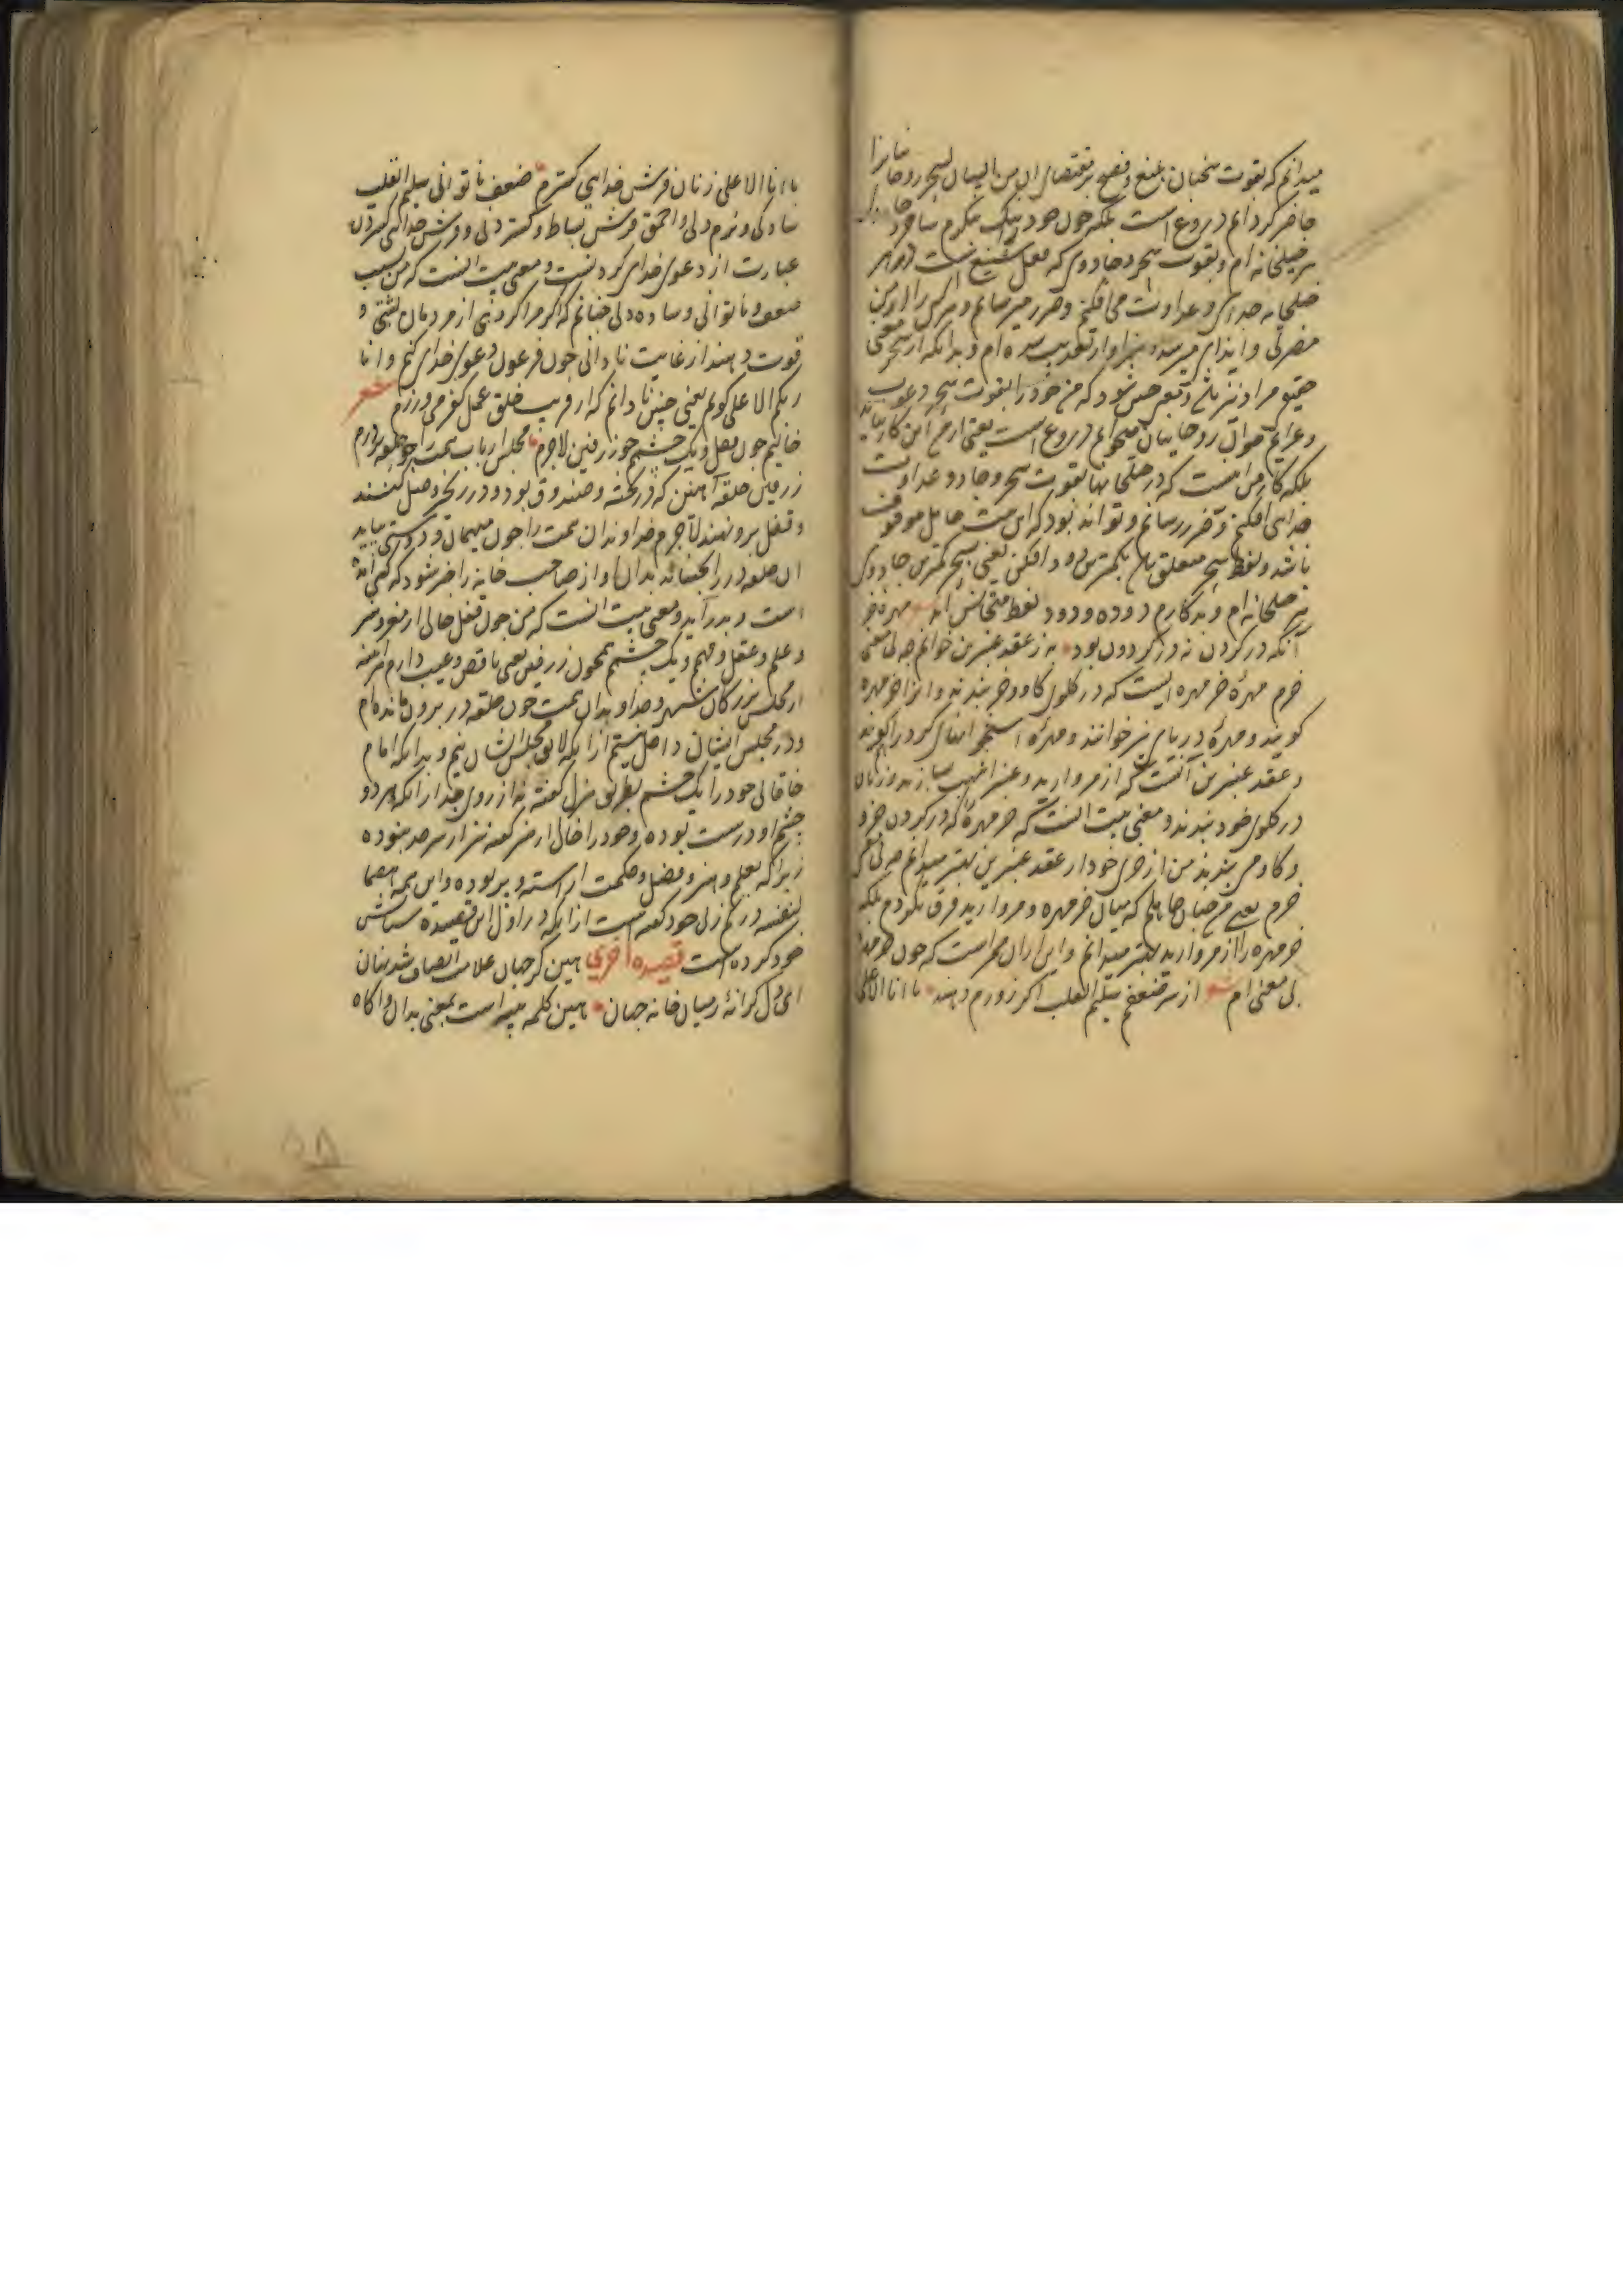 میدانم که بقوت سخنان بلیغ و فصیح بمقتضای ان من البیان لسحر روحانیانرا
حاضر کرده‌ایم دروغ است بلکه چون خود نیک بنکرم ساحر
بر صلحخانه‌ام و بقوت سحر و جادوی که فعل شنیع است
صلحخانه جدای و عداوت می افکنم و ضرر میرسانم و هرکس را از من
مضرتی و ایذای میرسد
حقیقی مراد نیز باشد که من خود را بقوت سحر
و عزایم خوان روحانیان میخوانم دروغ است یعنی از من این کار نیاید
بلکه کار من است که در صلحخانها بقوت سحر و جادو عداوت
جدایی افکنم و ضرر رسانم و تواند بود که این بیت حامل موقوف
باشد و لفظ سحر متعلق یعنی بسحر کمترین جادوی
بر صلحخانه‌ام و بدکارم دوده و دود لفظ متجانس اند مهره خر
آنکه در کردن نه در کردون بود به ز عقد عنبرین خوانم چه بی معنی
خرم مهره خر مهره ایست که در کلوی کاو و خر بندند و انرا خرمهره
کویند و مهره دریایی نیز خوانند و مهره
و عقد عنبرین آنست که از مروارید و عنبر اشهب سازند و زنان
در کلوی خود بندند و معنی بیت انست که خرمهرهٔ که در کردن خر و
و کاو می بندند من از خری خود از عقد عنبرین بهتر میدانم چه بی معنی
خرم یعنی من چنان جاهلم که میان خرمهره و مروارید فرق نکردم بلکه
خرمهره را از مروارید بهتر میدانم و این از ان خر است که چون خرمهره
بی معنی‌ام شعر از سر ضعفم سلیم القلب اکر زورم دهند با انا الاعلی
با انا الاعلی زنان فرش خدایی کسترم ضعف ناتوانی سلیم القلب
سادکی و نرم دلی و احمق فرش بساط و کستردنی و فرش خدایی کستردن
عبارت از دعوی خدای کردنست و معنی بیت انست که من بسبب
ضعف و ناتوانی و ساده دلی چنانم که اکر مرا کردنی از مردمان پشتی و
قوت دهند از غایت نادانی چون فرعون دعوی خدای کنم و انا
ربکم الاعلی کویم یعنی چنین نادانم که از فریب خلق عمل کفر می ورزم شعر
خالیم چون قفل و یک چشمم چو زرفین لاجرم مجلس ارباب همت را چو حلقه بر درم
زرفین حلقه آهنین که در تخته و صندوق بود و در زنجیر وصل کنند
و قفل برو نهند لاجرم خداوندان همت را چون مهمان و دوستی بیاید
ان حلقه در را بجنباند بدان و از صاحب خانه را خبر شود که کسی آمده
است و بدر آید و معنی بیت انست که من چون قفل خالی از مغز و سر
و علم و عقل و فهم و یک چشمم همچون زرفین یعنی ناقص و عیب دارم هرآینه
از مجلس بزرکان شهر و خداوندان همت چون حلقه در برون مانده‌ام
و در مجلس ایشان داخل نیستم از آنکه لایق مجلس ایشان نیم و بدانکه امام
خاقانی خود را یک چشم بطریق هزل کفته نه از روی جد از آنکه هر دو
چشم او درست بوده و خود را خالی از هنر کفته نیز از سر جد نبوده
زیرا که بعلم و هنر و فضل و حکمت آراسته و پر بوده و این همه هضما
لنفسه در کم زنی خود کفته است از آنکه در اول این قصیده ستایش
خود کرده است قصیده اخری هین کز جهان علامت انصاف شد نهان
ای دل کرانه ز میان خانه جهان هین کلمه تنبیه است بمعنی بدان و آکاه
۵۸